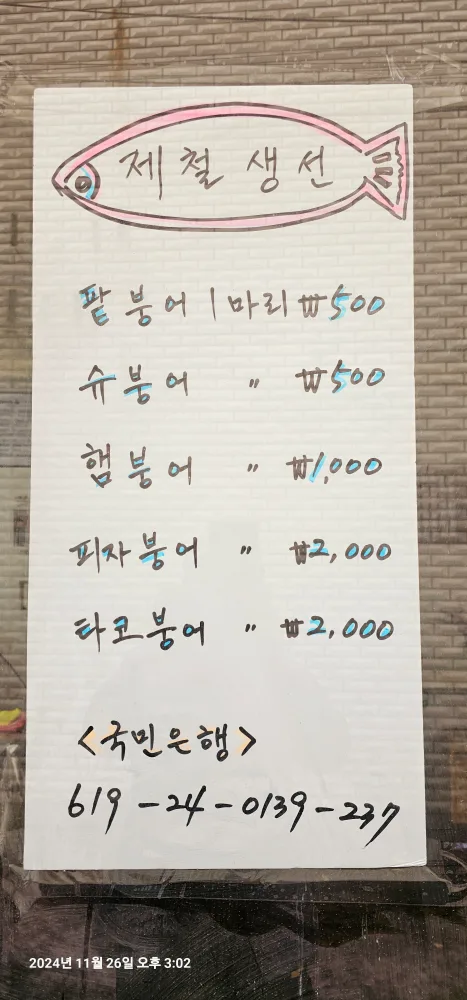 제철생선
팥붕어 1마리 ₩500
슈붕어 〃 ₩500
햄붕어 〃 ₩1,000
피자붕어 〃 ₩2,000
타코붕어 〃 ₩2,000
<국민은행>
619-24-0139-237
2024년 11월 26일 오후 3:02